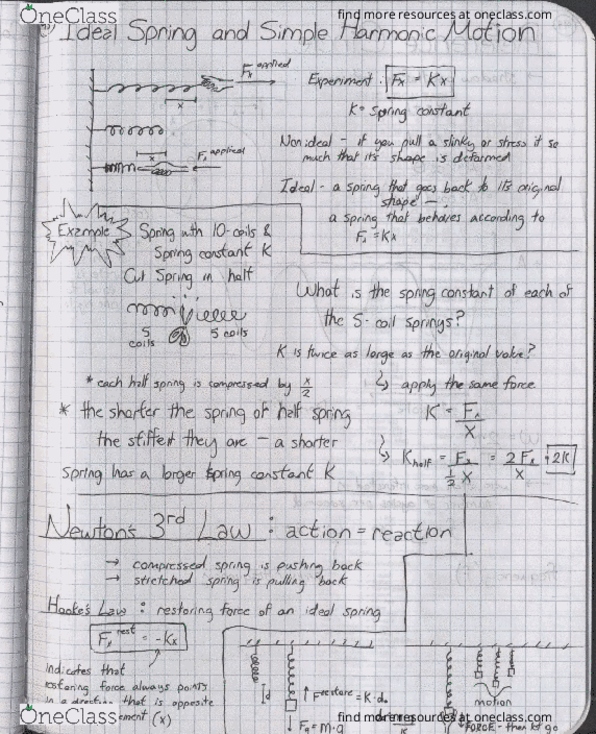 find more resources at oneclass.com
OneClass
Ideal Spring and Simple Harmonic Motion
Fx applied
x
Experiment : Fx = Kx
K = spring constant
Nonideal - if you pull a slinky or stress it so
much that its shape is deformed
x
Fx applied
Ideal - a spring that goes back to its original
shape
a spring that behaves according to
Fx = Kx
Example
Spring with 10-coils &
Spring constant K
Cut Spring in half
5 coils
5 coils
What is the spring constant of each of
the 5-coil springs?
K is twice as large as the original value?
* each half spring is compressed by x/2
apply the same force
* the shorter the spring of half spring
the stiffer they are - a shorter
spring has a larger spring constant K
K = Fx / X
Khalf = Fx / ½ X = 2Fx / X = 2K
Newton's 3rd Law : action = reaction
→ compressed spring is pushing back
→ stretched spring is pulling back
Hooke's Law : restoring force of an ideal spring
Fx rest = -Kx
indicates that
restoring force always points
in a direction that is opposite
(x)
d
↑ Frestore = K·do
↓ Fg = m·g
motion
FORCE - then let go
OneClass
find more resources at oneclass.com